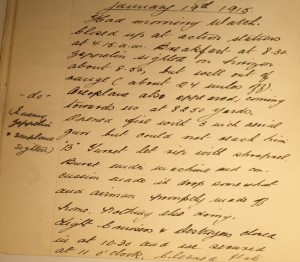 January 19th 1915.
Had morning Watch.
Closed up at action stations
at 4.15.a.m. Breakfast at 8.30
Zeppelin sighted on horizon
about 8.50, but well out of
range (about 24 miles off).
-do-
Aeroplane also appeared, coming
(Enemy
towards us at 8250 yards.
Zeppelin
Opened fire with 3 inch aerial
&
gun but could not reach him
aeroplane
"B" Turret let rip with shrapnel
sighted)
Burst under machine and con-
cussion made it drop somewhat
and airman promptly made off
home. Nothing else doing.
Light Cruisers & Destroyers closed
in at 10.30 and we secured
at 11 o'clock.